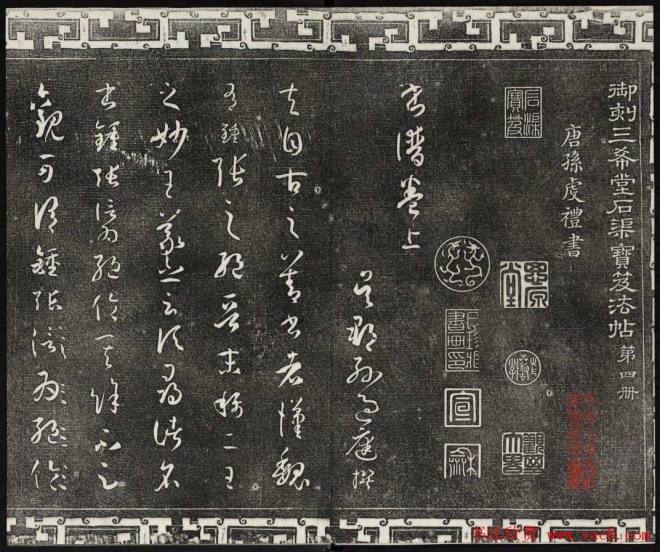 御刻三希堂石渠寶笈法帖 第四册
唐孫虔禮書
石渠寶笈
書譜卷上
吳郡孫過庭撰
夫自古之善書者漢魏
有鍾張之絕晉末稱二王
之妙王羲之云頃尋諸名
書鍾張信為絕倫其餘不足
觀可謂鍾張云沒而羲獻
宣
龢
www.yac8.com